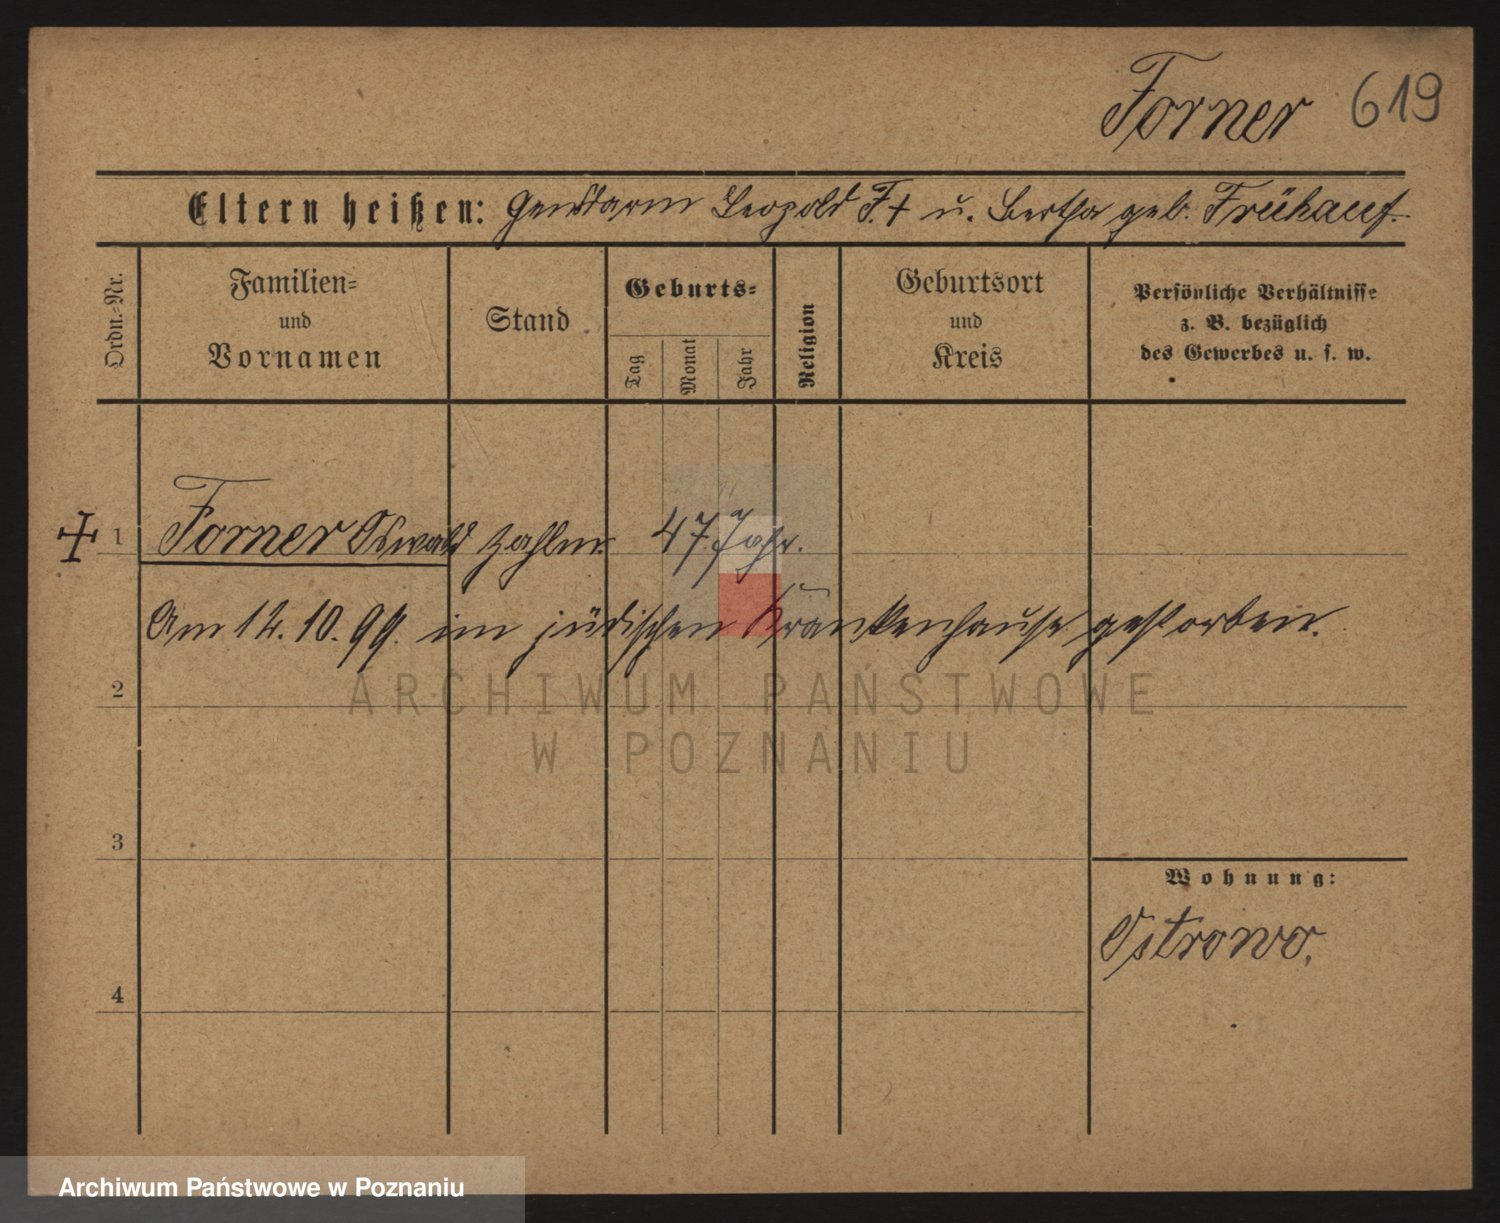 Forner 619
Eltern heißen: Gendarm Leopold F. † u. Bertha geb. Frühauf.
Ordn.-Nr.
Familien-
und
Vornamen
Stand
Geburts-
Tag
Monat
Jahr
Religion
Geburtsort
und
Kreis
Persönliche Verhältnisse
z. B. bezüglich
des Gewerbes u. s. w.
† 1 Forner Oswald Zahlm. 47 Jahr.
Am 12.10.99. im jüdischen Krankenhause gestorben.
2
ARCHIWUM PAŃSTWOWE
W POZNANIU
3
Wohnung:
Ostrowo.
4
Archiwum Państwowe w Poznaniu